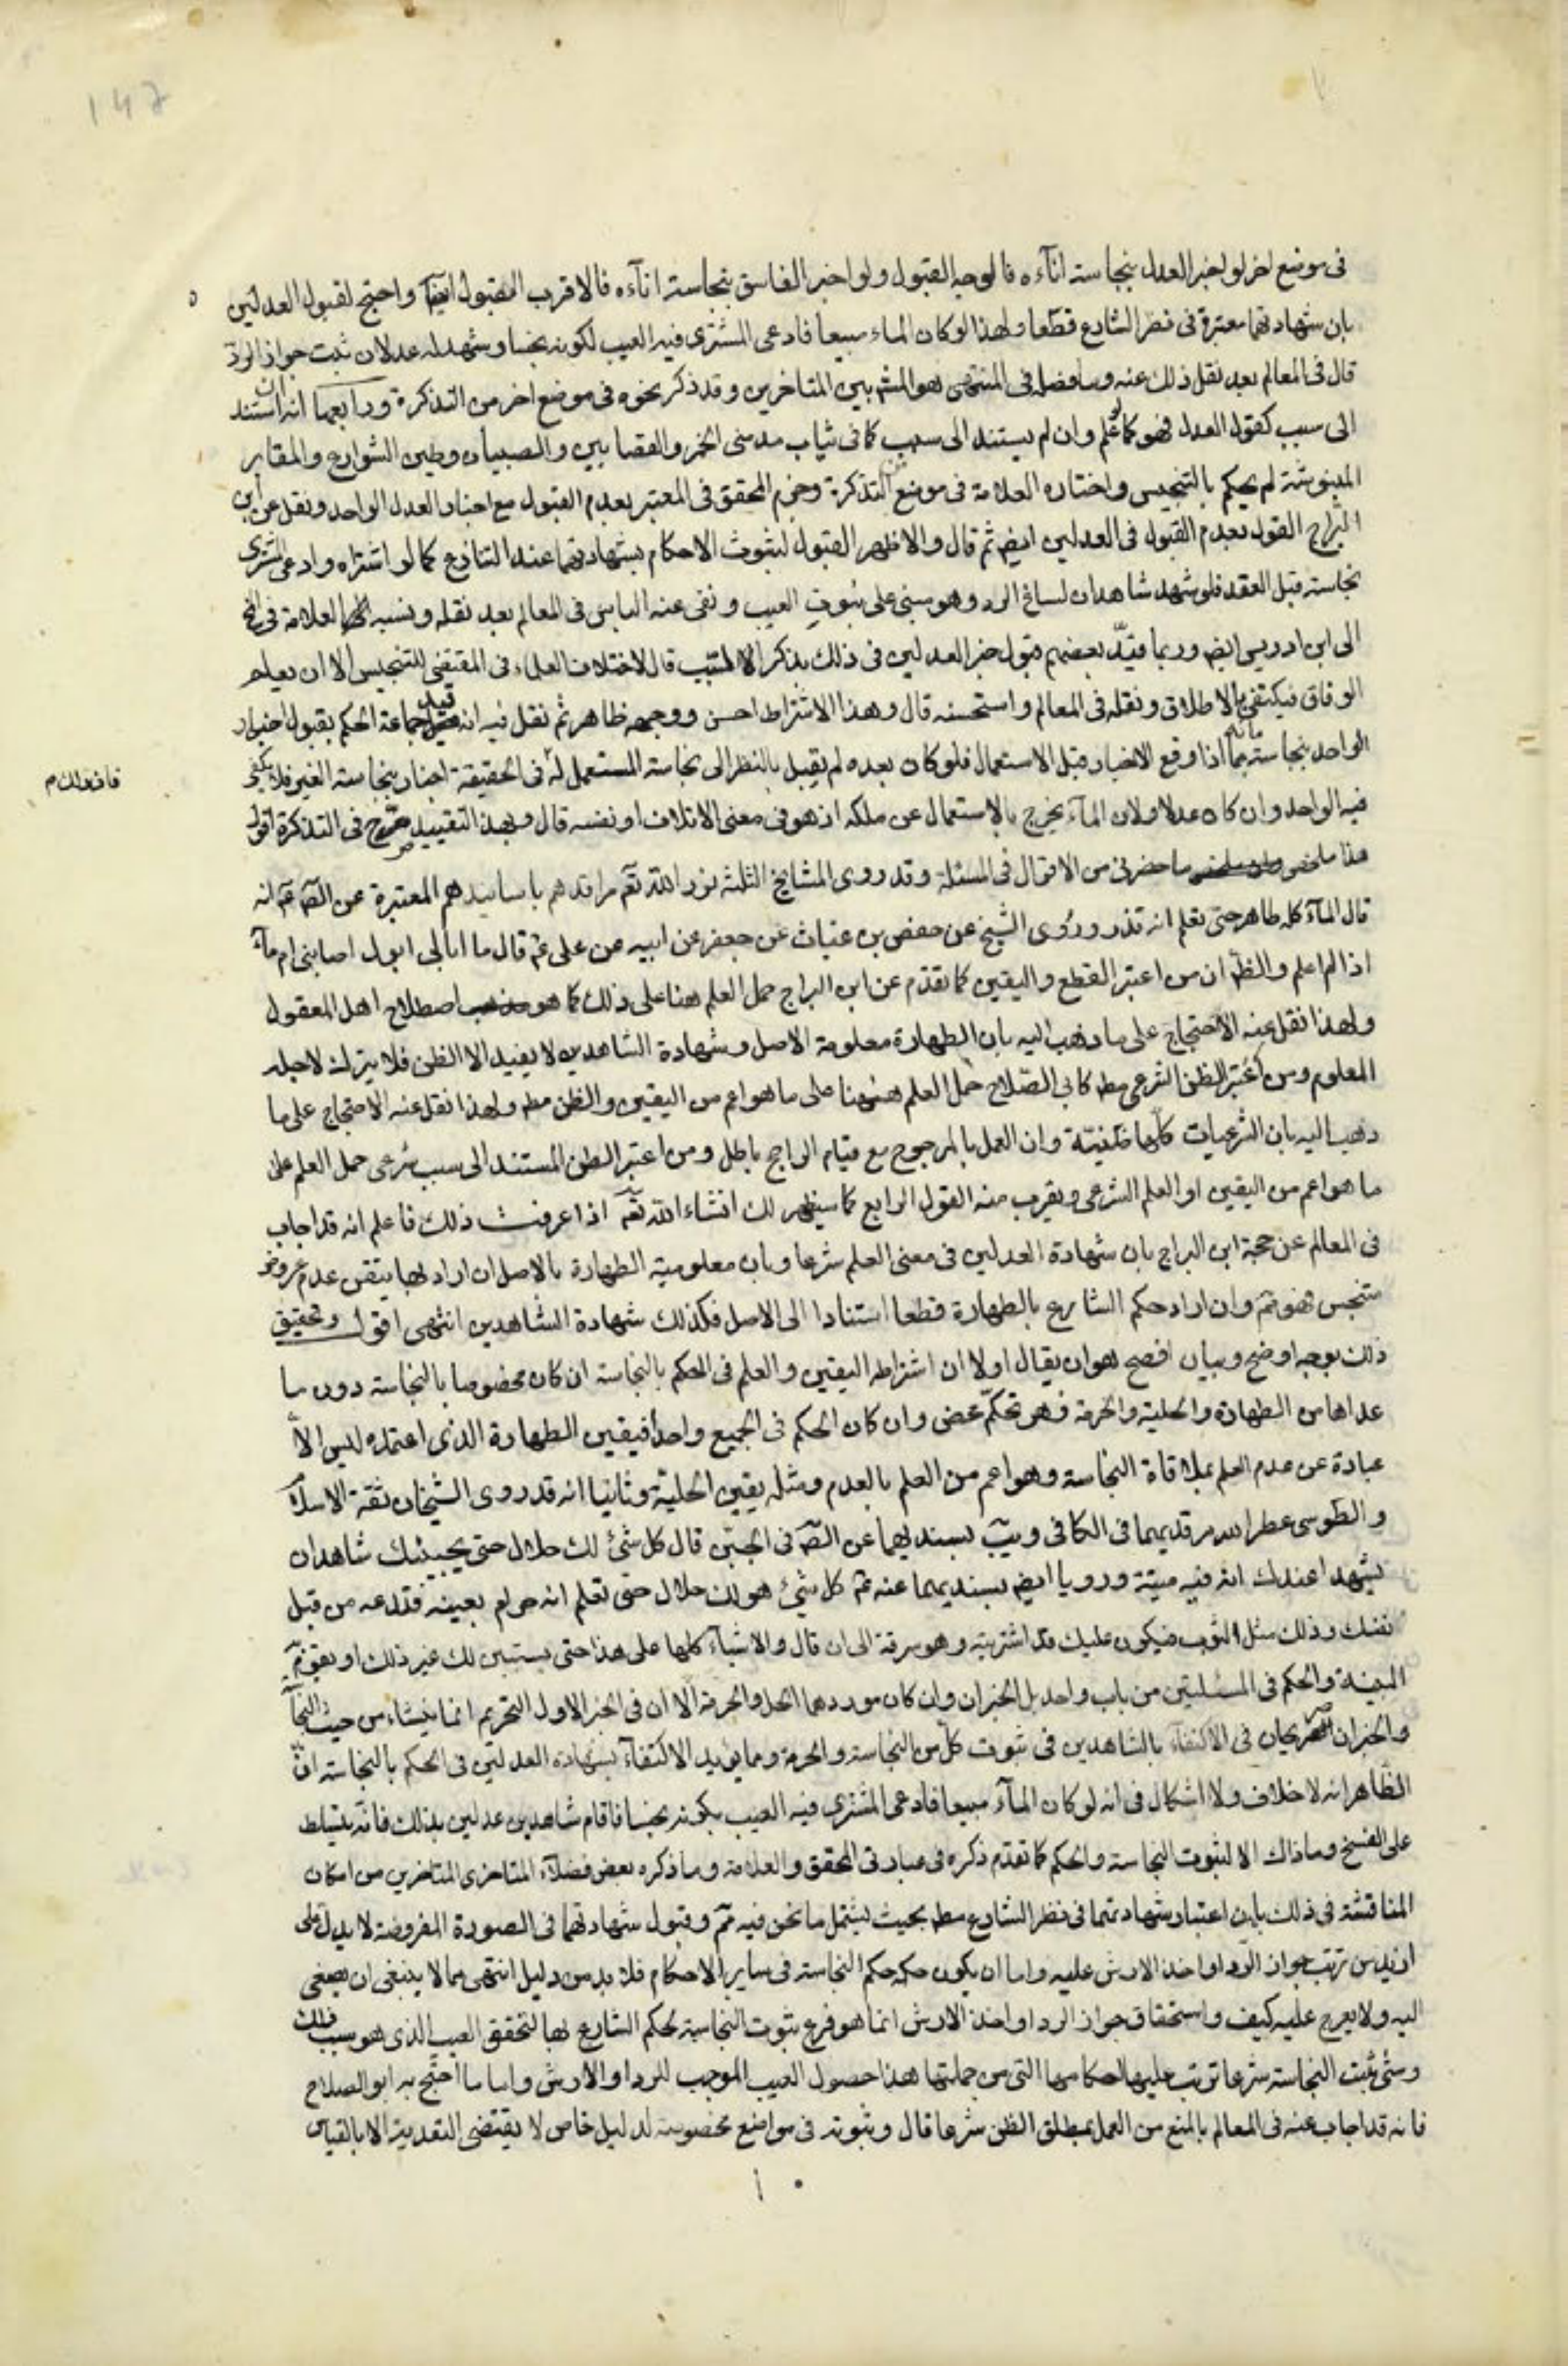 في موضع اخر لو اخبر العدل بنجاسة انآءه فالوجه القبول ولو اخبر الفاسق بنجاسة انآءه فالاقرب القبول ايضا واحتج لقبول العدلين
بان شهادتهما معتبرة في نظر الشارع قطعا ولهذا لو كان الماء مبيعا فادعى المشتري فيه العيب لكونه نجسا وشهد له عدلان ثبت جواز الرد
قال في المعالم بعد نقل ذلك عنه وما فصله في المنتهى هو المشـ بين المتاخرين وقد ذكر نحوه في موضع اخر من التذكرة ورابعها انه ان استند
الى سبب كقول العدل فهو كما لو علم وان لم يستند الى سبب كما في ثياب مدمني الخمر والقصابين والصبيان وطين الشوارع والمقابر
المنبوشة لم يحكم بالتنجيس واختاره العلامة في موضع من التذكرة وجزم المحقق في المعتبر بعدم القبول مع اخبار العدل الواحد ونقل عن ابن
البراج القول بعدم القبول في العدلين ايضا ثم قال والاظهر القبول لثبوت الاحكام بشهادتهما عند التنازع كما لو اشتراه وادعى المشتري
نجاسته قبل العقد فلو شهد شاهدان لساغ الرد وهو مبني على ثبوت العيب ونفى عنه الباس في المعالم بعد نقله ونسبه العلامة في
الى ابن ادريس ايض وربما قيد بعضهم قبول خبر العدلين في ذلك بذكر السبب قال لاختلاف العلماء في المقتضي للتنجيس الا ان يعلم
الوفاق فيكتفى بالاطلاق ونقله في المعالم واستحسنه قال وهذا الاشتراط احسن ووجهه ظاهر ثم نقل فيه انه قيد جماعة الحكم بقبول اخبار
الواحد بنجاسة مائه بما اذا وقع الاخبار قبل الاستعمال فلو كان بعده لم يقبل بالنظر الى نجاسة المستعمل له في الحقيقة اخبار بنجاسة الغير فلا يكفي
فان ذلك م
فيه الواحد وان كان عدلا ولان المآء يخرج بالاستعمال عن ملكه اذ هو في معنى الاتلاف او نفسه قال وبهذا التقييد صرح في التذكرة اقول
هذا ملخص ما حضرني من الاقوال في المسئلة وقد روى المشايخ الثلثة نور الله تعـ مراقدهم باسانيدهم المعتبرة عن الصـ عـ انه
قال المآء كله طاهر حتى تعلم انه قذر وروى الشيخ عن حفص بن غياث عن جعفر عن ابيه عن علي عـ قال ما ابالي ابول اصابني ام مآء
اذا لم اعلم والظـ ان من اعتبر القطع واليقين كما تقدم عن ابن البراج حمل العلم هنا على ذلك كما هو اصطلاح اهل المعقول
ولهذا نقل عنه الاحتجاج على ما ذهب اليه بان الطهارة معلومة الاصل وشهادة الشاهدين لا يفيد الا الظن فلا يترك لاجله
المعلوم ومن اعتبر الظن الشرعي مط كابي الصلاح حمل العلم ههنا على ما هو اعم من اليقين والظن مط ولهذا نقل عنه الاحتجاج على ما
ذهب اليه بان الشرعيات كلها ظنية وان العمل بالمرجوح مع قيام الراجح باطل ومن اعتبر الظن المستند الى سبب شرعي حمل العلم على
ما هو اعم من اليقين او العلم الشرعي ويقرب منه القول الرابع كما سيظهر لك انشاء الله تعـ اذا عرفت ذلك فاعلم انه قد اجاب
في المعالم عن حجة ابن البراج بان شهادة العدلين في معنى العلم شرعا وبان معلومية الطهارة بالاصل ان اراد بها تيقن عدم عروض
منجس فهو مم وان اراد حكم الشارع بالطهارة قطعا استنادا الى الاصل فكذلك شهادة الشاهدين انتهى اقول وتحقيق
ذلك بوجه اوضح وبيان افصح هو ان يقال اولا ان اشتراط اليقين والعلم في الحكم بالنجاسة ان كان مخصوصا بالنجاسة دون ما
عداها من الطهارة والحلية والحرمة فهو تحكم محض وان كان الحكم في الجميع واحدا فيقين الطهارة الذي اعتمده ليس الا
عبارة عن عدم العلم بملاقاة النجاسة وهو اعم من العلم بالعدم ومثله يقين الحلية وثانيا انه قد روى الشيخان ثقة الاسلام
والطوسي عطر الله مرقديهما في الكافي ويب بسنديهما عن الصـ في الجبن قال كل شئ لك حلال حتى يجيئك شاهدان
يشهدا عندك ان فيه ميتة ورويا ايض بسنديهما عنه عـ كل شئ هو لك حلال حتى تعلم انه حرام بعينه فتدعه من قبل
نفسك وذلك مثل الثوب فيكون عليك قد اشتريته وهو سرقة الى ان قال والاشيآء كلها على هذا حتى يستبين لك غير ذلك او يقوم به
البينة والحكم في المسئلتين من باب واحد بل الخبران وان كان موردهما الحل والحرمة الا ان في الخبر الاول التحريم انما ينشاء من حيث النجا
والخبران صريحان في الاكتفاء بالشاهدين في ثبوت كل من النجاسة والحرمة ومما يؤيد الاكتفآء بشهادة العدلين في الحكم بالنجاسة ان
الظاهر انه لا خلاف ولا اشكال في انه لو كان المآء مبيعا فادعى المشتري فيه العيب بكونه نجسا فاقام شاهدين عدلين بذلك فانه يتسلط
على الفسخ وما ذاك الا لثبوت النجاسة والحكم كما تقدم ذكره في عبارتي المحقق والعلامة وما ذكره بعض فضلآء المتاخري المتاخرين من امكان
المناقشة في ذلك بان اعتبار شهادتهما في نظر الشارع مط بحيث يشتمل ما نحن فيه مم وقبول شهادتهما في الصورة المفروضة لا يدل على
ازيد من ترتب جواز الرد او اخذ الارش عليه واما ان يكون حكمه حكم النجاسة في ساير الاحكام فلا بد من دليل انتهى مما لا ينبغي ان يصغى
اليه ولا يعرج عليه كيف واستحقاق جواز الرد او اخذ الارش انما هو فرع ثبوت النجاسة لحكم الشارع بها لتحقق العيب الذي هو سبب ذلك
ومتى ثبت النجاسة شرعا ترتب عليها احكامها التي من جملتها هذا حصول العيب الموجب للرد او الارش واما ما احتج به ابو الصلاح
فانه قد اجاب عنه في المعالم بالمنع من العمل بمطلق الظن شرعا قال وثبوته في مواضع مخصوصة لدليل خاص لا يقتضي التعدية الا بالقياس